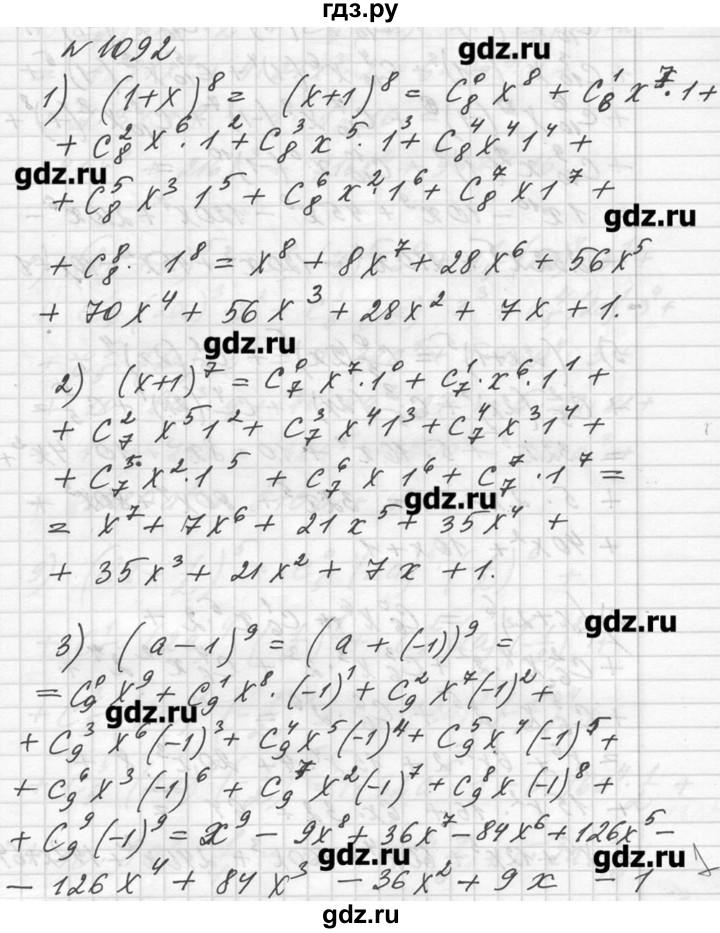 гдз.ру
№ 1092
gdz.ru
1) (1+x)⁸ = (x+1)⁸ = C₈⁰ x⁸ + C₈¹ x⁷·1 +
+ C₈² x⁶·1² + C₈³ x⁵·1³ + C₈⁴ x⁴ 1⁴ +
gdz.ru
+ C₈⁵ x³ 1⁵ + C₈⁶ x²·1⁶ + C₈⁷ x 1⁷ +
gdz.ru
+ C₈⁸· 1⁸ = x⁸ + 8x⁷ + 28x⁶ + 56x⁵
+ 70x⁴ + 56x³ + 28x² + 7x + 1.
gdz.ru
2) (x+1)⁷ = C₇⁰ x⁷·1⁰ + C₇¹·x⁶·1¹ +
+ C₇² x⁵ 1² + C₇³ x⁴ 1³ + C₇⁴ x³ 1⁴ +
+ C₇⁵ x²·1⁵ + C₇⁶ x 1⁶ + C₇⁷·1⁷ =
gdz.ru
= x⁷ + 7x⁶ + 21x⁵ + 35x⁴ +
+ 35x³ + 21x² + 7x + 1.
gdz.ru
3) (a−1)⁹ = (a + (−1))⁹ =
= C₉⁰ x⁹ + C₉¹ x⁸·(−1)¹ + C₉² x⁷(−1)² +
gdz.ru
+ C₉³ x⁶(−1)³ + C₉⁴ x⁵(−1)⁴ + C₉⁵ x⁴(−1)⁵ +
+ C₉⁶ x³(−1)⁶ + C₉⁷ x²(−1)⁷ + C₉⁸ x(−1)⁸ +
+ C₉⁹(−1)⁹ = x⁹ − 9x⁸ + 36x⁷ − 84x⁶ + 126x⁵ −
gdz.ru
gdz.ru
− 126x⁴ + 84x³ − 36x² + 9x − 1
gdz.ru